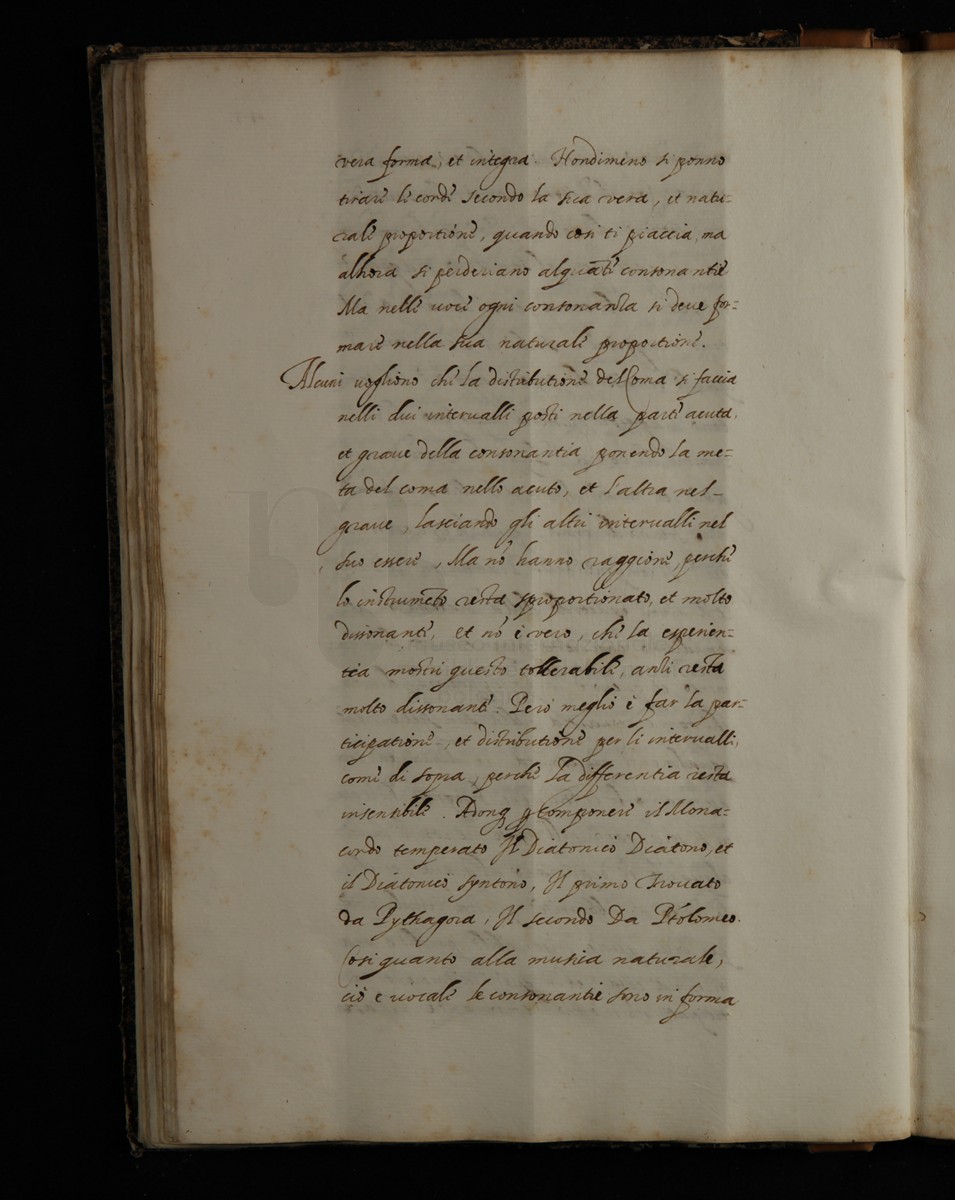 vera forma, et integra. Nondimeno si ponno
tirare le corde secondo la sua vera, et natu-
rale proportione, quando così ti piaccia, ma
alhora si perderiano alquāte consonantie
Ma nelle uoce ogni consonanza si deue for-
mare nella sua naturale proportione.
Alcuni uogliono che la distributione del Coma si faccia
nelli dui interualli posti nella parte acuta,
et graue della consonantia ponendo la me-
ta del coma nello acuto, et l'altra nel-
graue, lasciando gli altri interualli nel
suo essere, Ma nō hanno raggione, perche
lo instrumēto resta sproportionato, et molto
dissonante, et nō è vero, che la esperien-
tia mostri questo tollerabile, anzi resta
molto dissonante. Però meglio è far la par-
ticipatione, et distributione per li interualli,
come di sopra, perche la differentia resta
insensibile. Adonq componere il Mona-
cordo temperato Il Diatonico Diatono, et
il Diatonico syntono, Il primo Trouato
da Pythagora, Il secondo Da Ptolomeo.
Così quanto alla musica naturale,
ciò è uocale le consonantie sono in forma